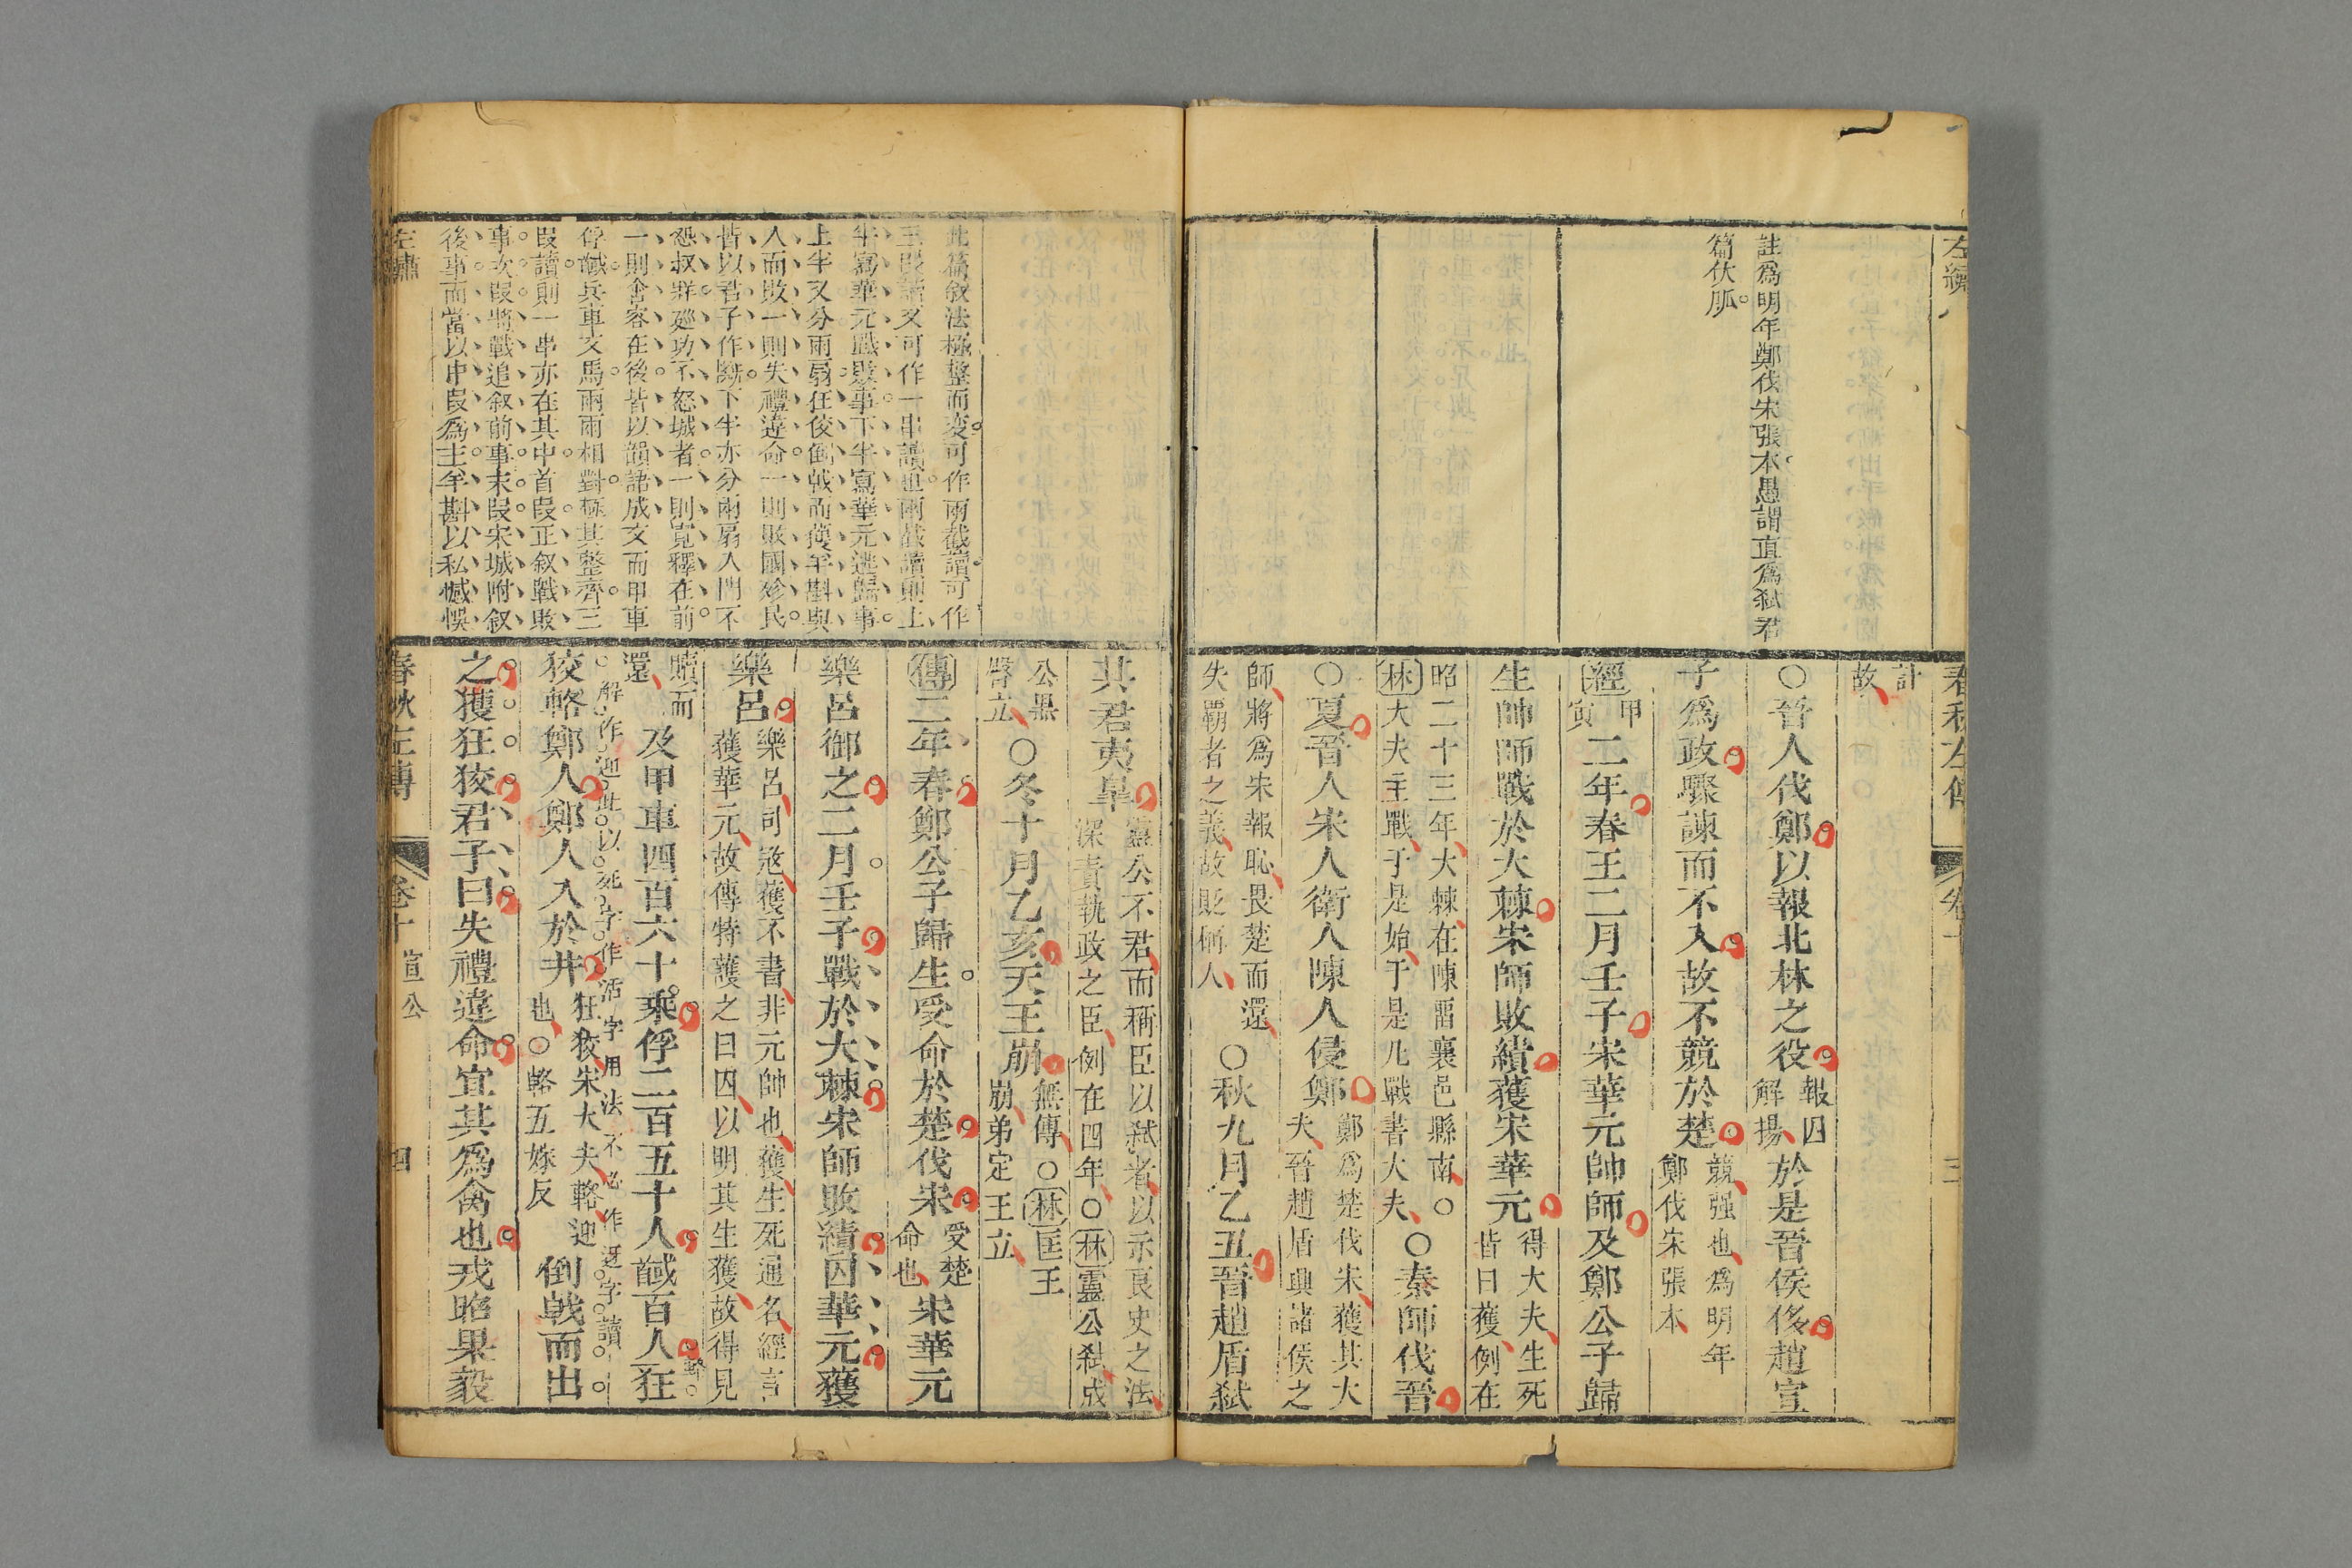 左繡
註爲明年鄭伐宋張本愚謂直爲弒君
篇伏脈
春秋左傳
卷十
三
計
故
○晉人伐鄭以報北林之役報囚解揚於是晉侯侈趙宣
子爲政驟諫而不入故不競於楚競强也爲明年鄭伐宋張本
經甲寅二年春王二月壬子宋華元帥師及鄭公子歸
生帥師戰於大棘宋師敗績獲宋華元得大夫生死皆曰獲例在
昭二十三年大棘在陳畱襄邑縣南○林大夫主戰于是始于是凡戰書大夫○秦師伐晉
○夏晉人宋人衛人陳人侵鄭鄭爲楚伐宋獲其大夫晉趙盾興諸侯之
師將爲宋報恥畏楚而還失霸者之義故貶稱人○秋九月乙丑晉趙盾弒
其君夷皐靈公不君而稱臣以弒者以示良史之法深責執政之臣例在四年○林靈公弒成
公黑臀立○冬十月乙亥天王崩無傳○林匡王崩弟定王立
傳二年春鄭公子歸生受命於楚伐宋受楚命也宋華元
樂呂御之二月壬子戰於大棘宋師敗績囚華元獲
樂呂樂呂司寇獲不書非元帥也獲生死通名經言獲華元故傳特護之曰囚以明其生獲故得見
贖而還及甲車四百六十乘俘二百五十人馘百人狂
解作迎此以死字作活字用法不必作迓字讀
狡輅鄭人鄭人入於井狂狡宋大夫輅迎也○輅五嫁反倒戟而出
之獲狂狡君子曰失禮違命宜其爲禽也戎昭果毅
此篇叙法極整而変可作兩截讀可作
三段讀又可作一串讀也兩截讀則上
半寫華元戰敗事下半寫華元逃歸事
上半又分兩扇狂俊倒戟而獲羊斟與
人而敗一則失禮違命一則敗國殄民
皆以君子作斷下半亦分兩扇入門不
怨叔牂廵功不怒城者一則寬釋在前
一則舍容在後皆以韻語成文而甲車
俘馘兵車文馬兩兩相對極其整齊三
段讀則一串亦在其中首段正叙戰敗
事次段將戰追叙前事末段宋城附叙
後事而當以中段爲主羊斟以私憾悞
左繡
春秋左傳
卷十
宣公
四